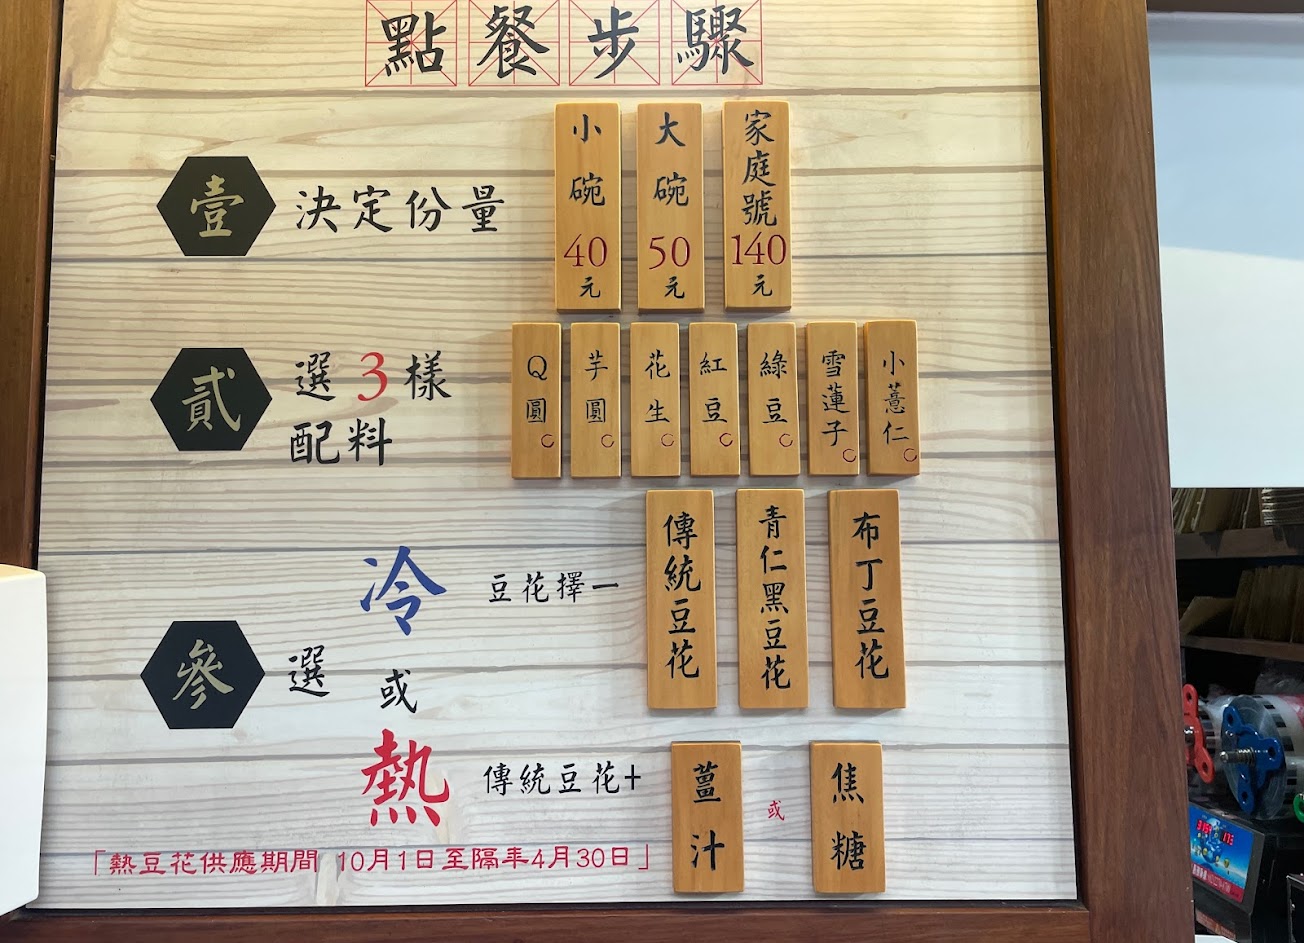 點餐步驟
壹 決定份量
小碗 40元
大碗 50元
家庭號 140元
貳 選3樣配料
Q圓
芋圓
花生
紅豆
綠豆
雪蓮子
小薏仁
參 選 冷 或 熱
豆花擇一
傳統豆花
青仁黑豆花
布丁豆花
傳統豆花+
薑汁
或
焦糖
「熱豆花供應期間 10月1日至隔年4月30日」